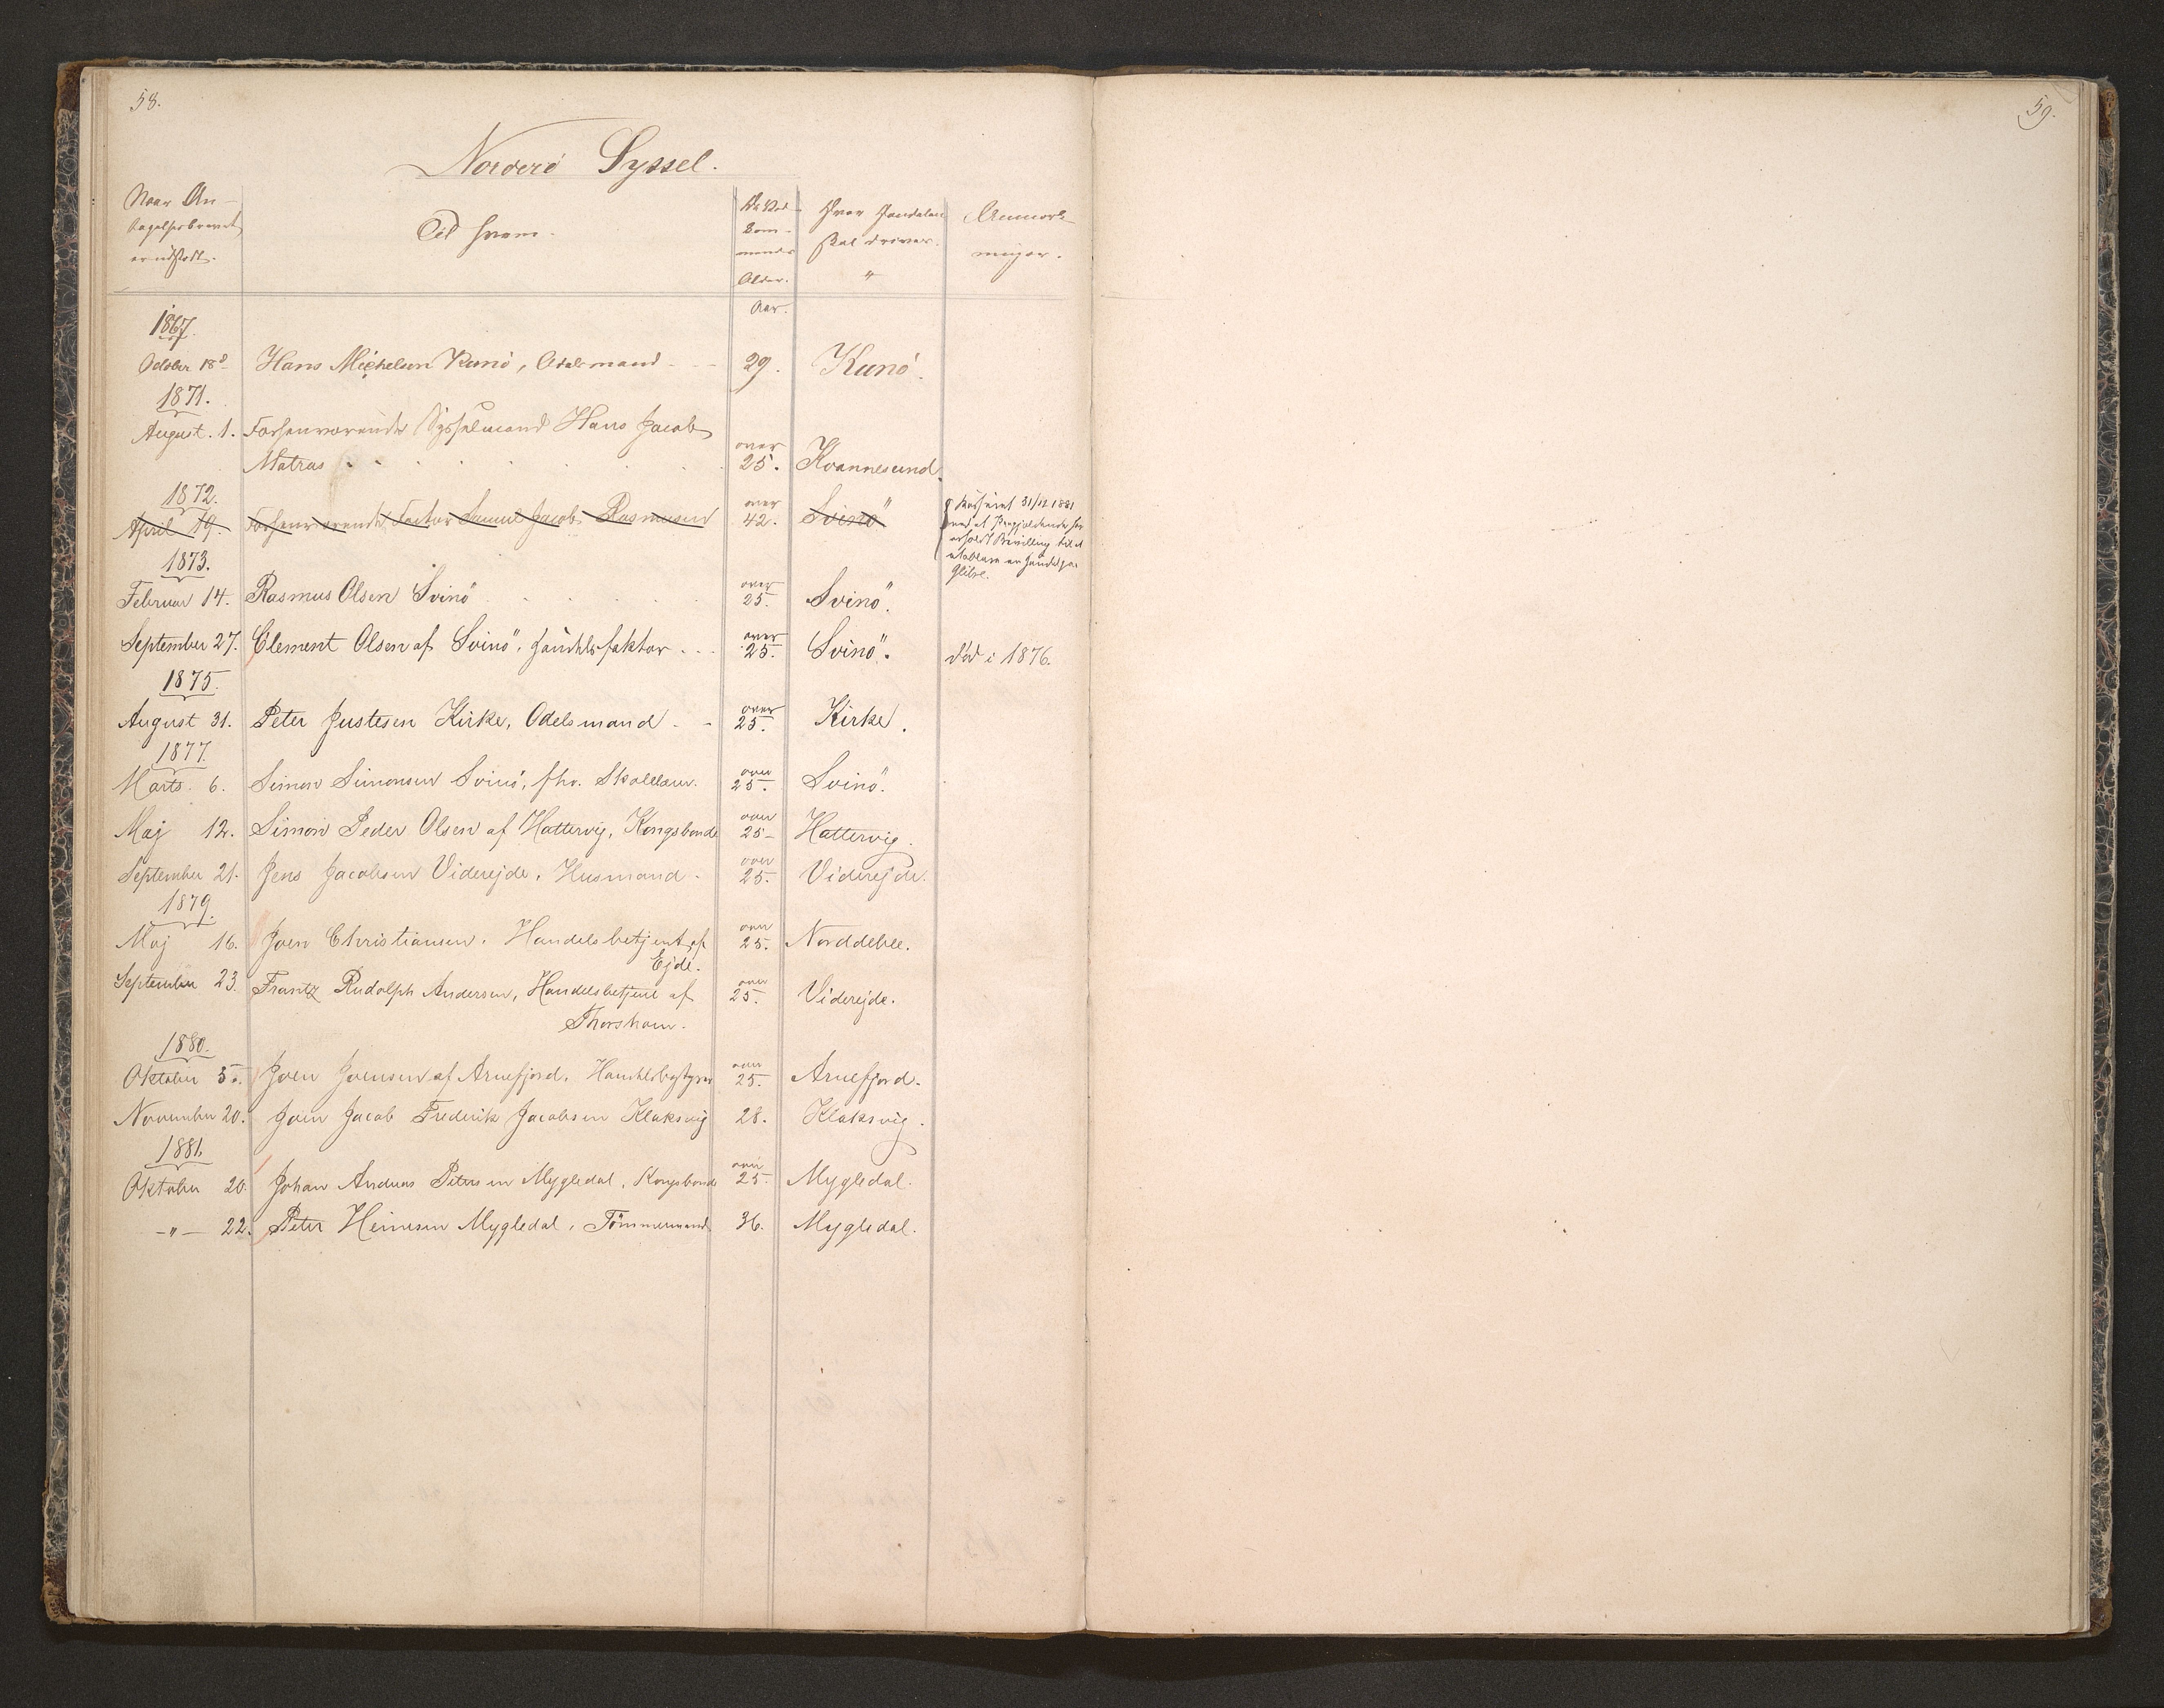 58.
59.
Norderö Syssel.
Naar An-
tagelsesbrevet
er udstedt.
Til hvem.
Alder.
Hvor Handelen
skal drives.
"
Anmærk-
ninger.
Aar.
1867.
October 18d Hans Michelsen Kunö, Odelsmand - - 29. Kunö.
1871.
August. 1. Forhenværende Sysselmand Hans Jacob
Matras over 25. Kvannesund.
1872.
April 19. Forhenværende Factor Samuel Jacob Rasmussen over 42. Svinö"
31/12 1881
erholdt Bevilling til at
etablere en Handel paa
Glibre.
1873.
Februar 14. Rasmus Olsen Svinö over 25. Svinö.
September 27. Clement Olsen af Svinö, Handelsfaktor - - over 25. Svinö. död i 1876.
1875.
August 31. Peter Justesen Kirke, Odelsmand - - over 25. Kirke.
1877.
Marts 6. Simon Simonsen Svinö, fhv. Skolelærer. over 25. Svinö.
Maj 12. Simon Peder Olsen af Hattervig, Kongsbonde over 25 - Hattervig.
September 21. Jens Jacobsen Viderejde, Husmand - over 25. Viderejde.
1879.
Maj 16. Joen Christiansen, Handelsbetjent af
Ejde. over 25. Norddeble.
September 23. Frantz Rudolph Andersen, Handelsbetjent af
Thorshavn. over 25. Viderejde.
1880.
Oktober 5. Joen Joensen af Arnefjord, Handelsbestyrer over 25. Arnefjord.
November 20. Joen Jacob Frederik Jacobsen Klaksvig 28. Klaksvig.
1881.
Oktober 20. Johan Andreas Petersen Mygledal, Kongsbonde over 25. Mygledal.
-"- 22. Peter Heinesen Mygledal, Tömmermand 36. Mygledal.